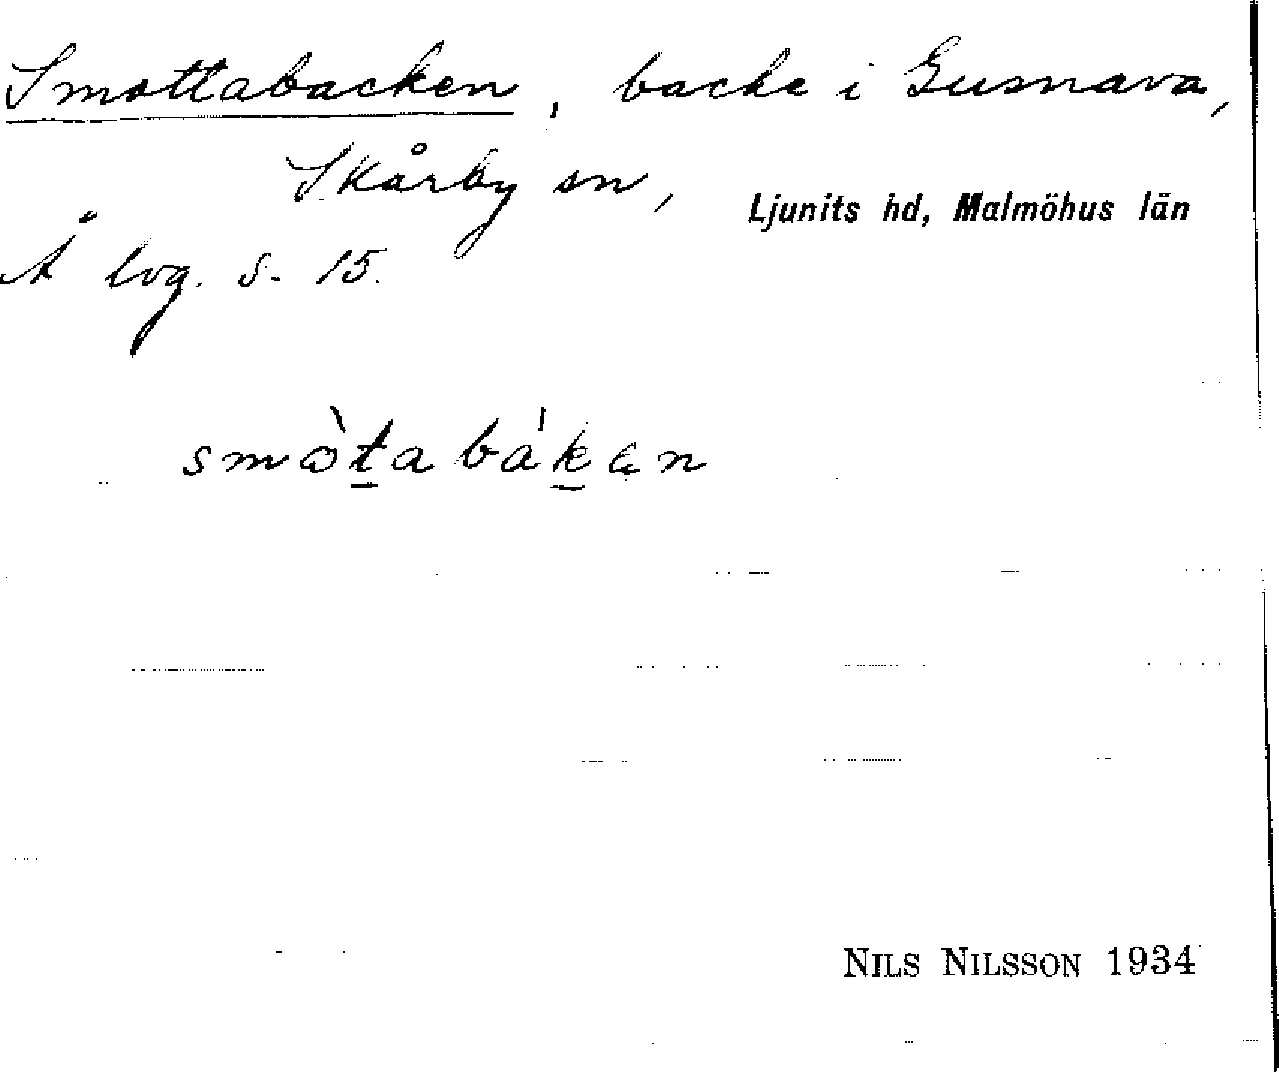 Smottabacken, backe i Gusnava,
Skårby sn, Ljunits hd, Malmöhus län
Å lvg. S. 15.
smòtabákən
NILS NILSSON 1934